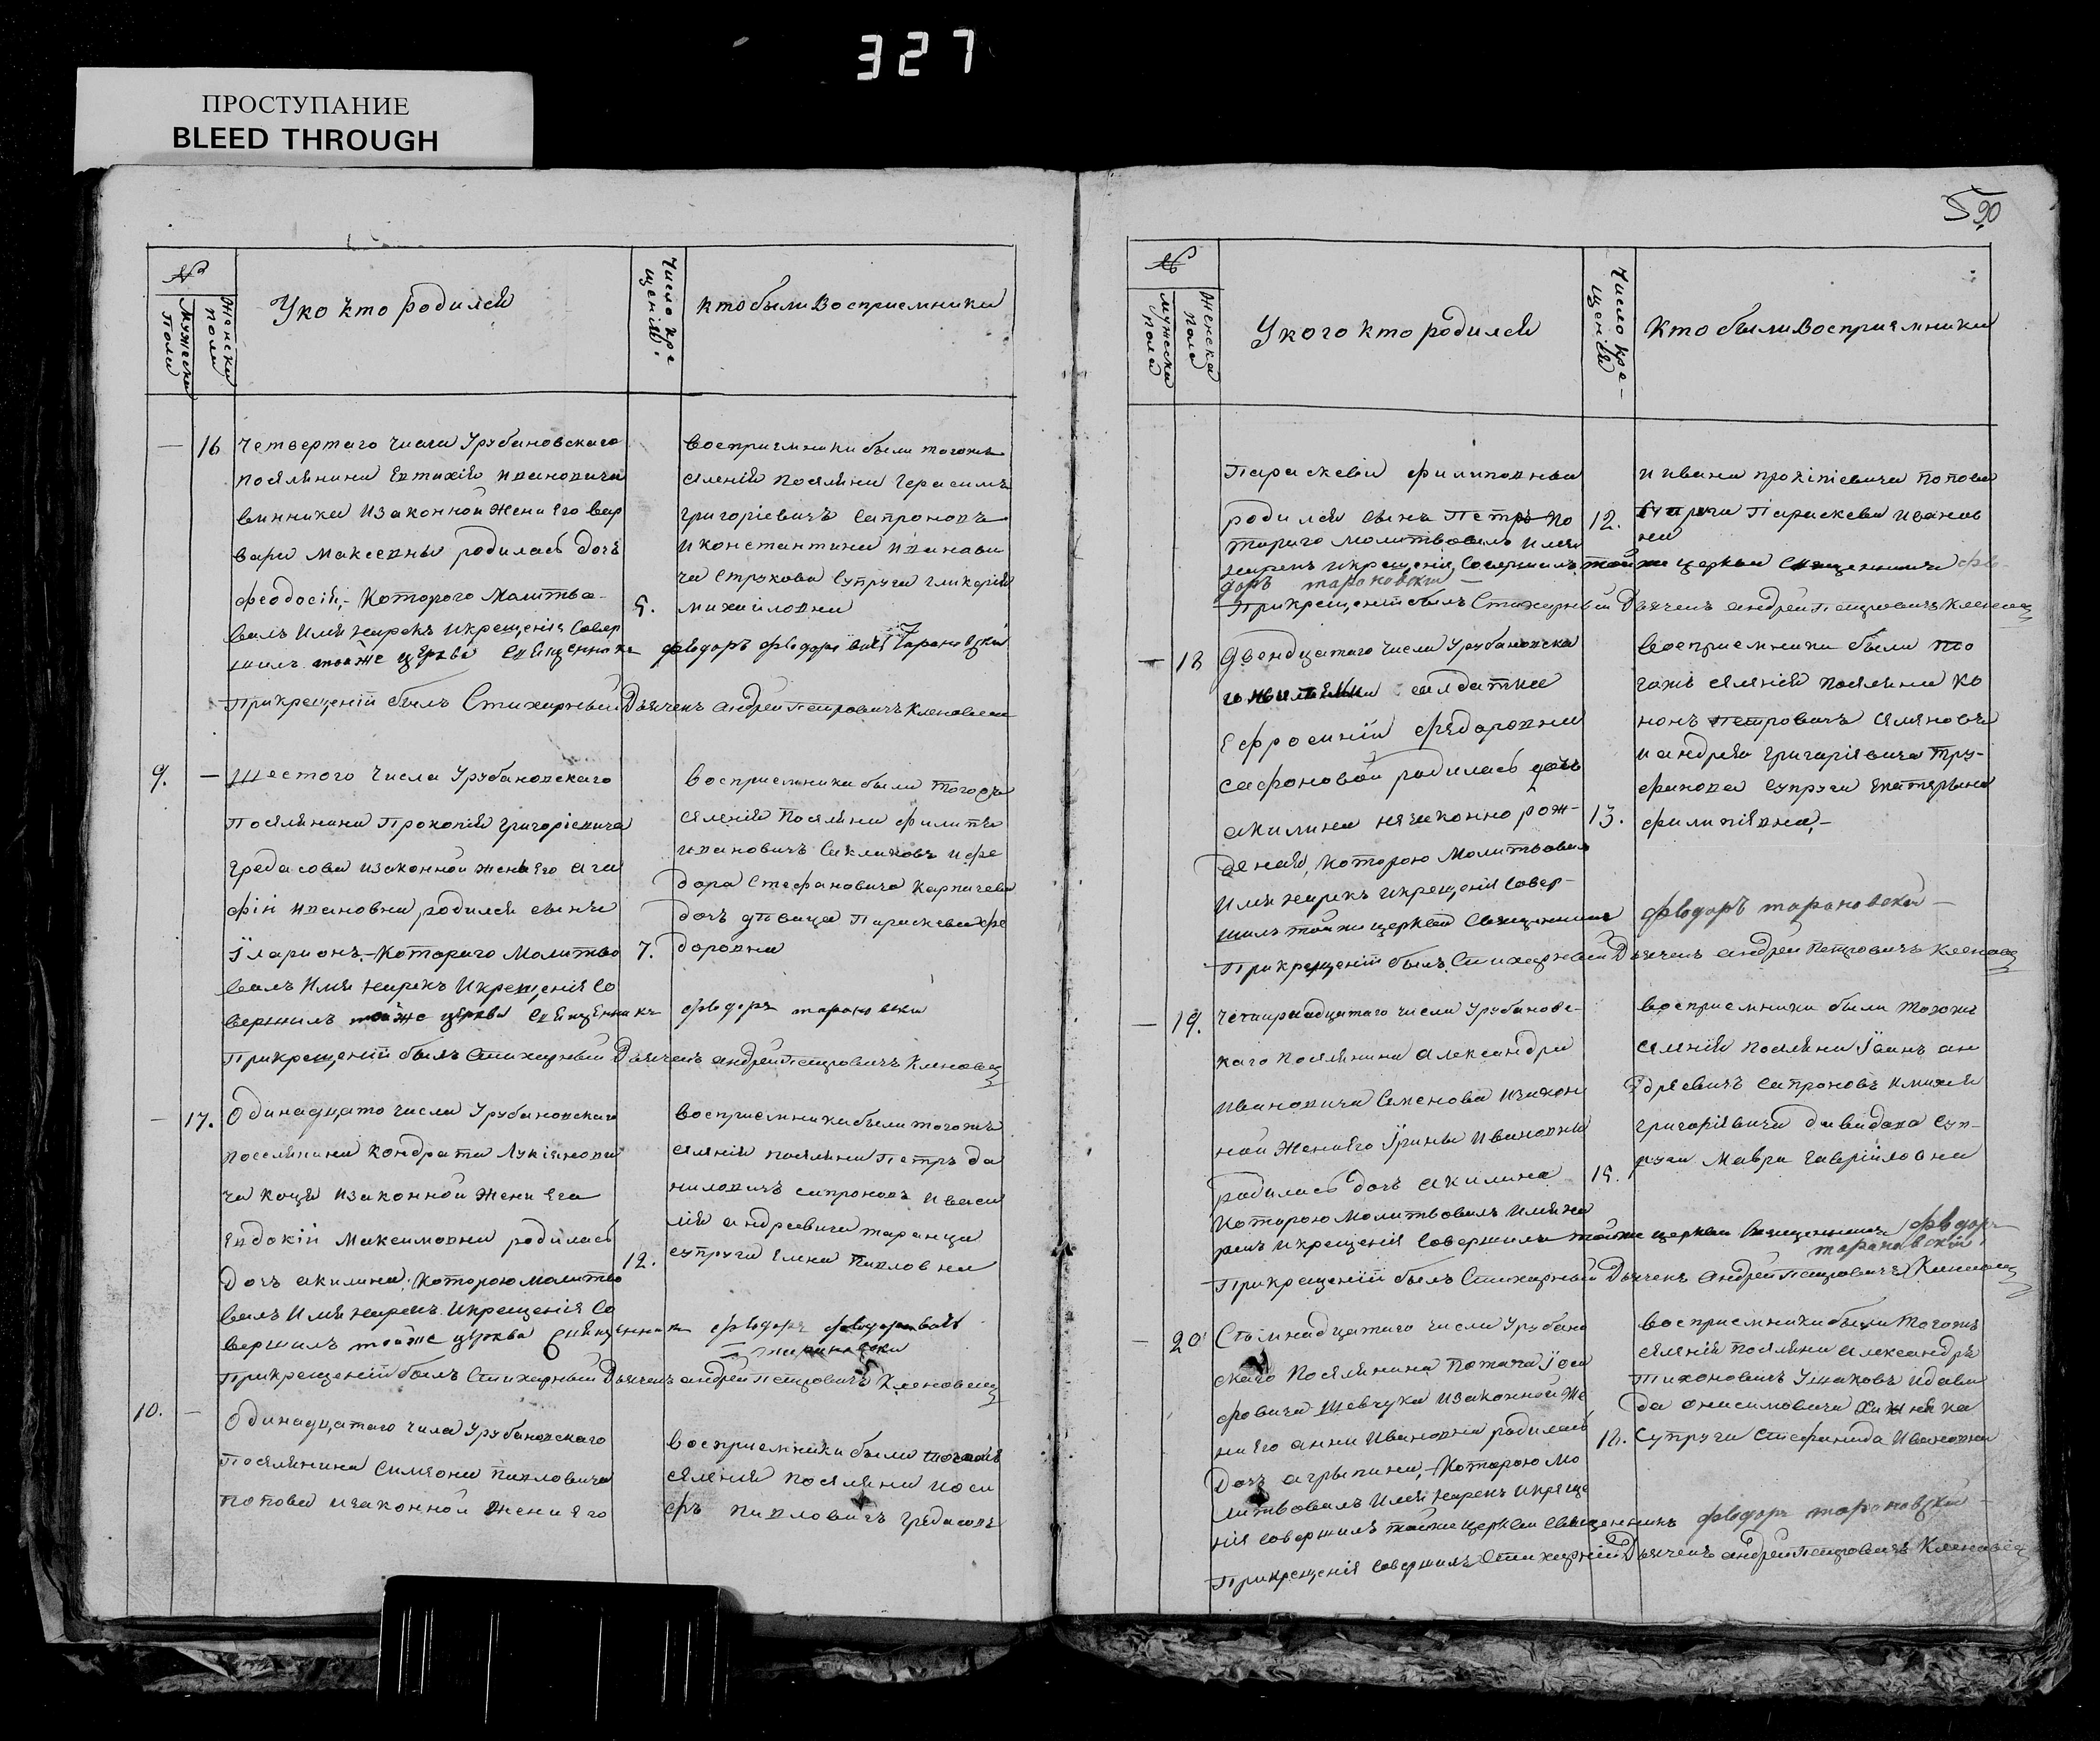 327
ПРОСТУПАНИЕ
BLEED THROUGH
№
Мужеска Полa
Женска полa
Уко кто родился
Число кре
щенія.
кто были восприемники
— 16 четвертаго числа Урубановскаго
поселянина Евтихія Ивановича
винника изаконной жены его вар
вары Максевны родилась дочь
феодосія, – Которого Молитво-
валъ Имя нарекъ икрещеніе Совер
шилъ тойже церкви Священникъ
5.
восприемники были тогожъ
селенія поселяни Герасимъ
григоріевичъ Сапроновъ
и константина иванови
ча Струкова Супруга гликерія
михайловна
фѣодоръ фѣодоровичъ Тарановскій
Прикрещеніи былъ Стихарный Дьячекъ андрей петровичъ Кленовец
9. — Шестого Числа Урубановскаго
Поселянина Прокопія Григоріевича
Гредасова изаконной жены его ага
фіи ивановны, родился сынъ
Їларионъ, – Котораго Молитво
валъ Имя нарекъ Икрещеніе Со
вершилъ тойже церкви Священникъ
7.
восприемники были тогожъ
селенія Поселяни филипъ
ивановичъ Секликовъ ифе
дора Стефановича Карпачева
дочъ дѣвица Параскева фе
доровна
фѣодоръ тарановски
Прикрещеніи былъ Стихарный Дьячекъ андрей петровичъ Кленовец
— 17. Одинадцато числа Урубановскаго
поселянина Кондрата Лукіянови
ча коця изаконной жены Его
Евдокіи Максимовны родилась
Дочъ акилина, Которою молитво
валъ Имя нарекъ Икрещенія Со
вершилъ тойже церкви Священникъ
12.
восприемники были тогожъ
селенія поселяни Петръ да
ниловичъ сапроновъ и васи
лія андреевича таранца
супруга Елена Павловна
фѣодоръ фѣодоровичъ
тарановски
Прикрещеніи былъ Стихарный Дьячекъ андрей петровичъ Кленовец
10. — Одинадцатаго числа Урубановскаго
Поселянина Симеона Павловича
Попова изаконной жены Его
восприемники были тогожъ
селенія поселяни иоси
фъ Павловичъ Гредасовъ
590
№
мужеска пола
женска пола
Укого кто родился
Число кре-
щенія
Кто были восприемники
Параскевы филиповны
родился сынъ Петръ Ко
тораго молитвовалъ имя
нарекъ икрещенія Совершилъ тойже церкви Священникъ фѣо-
доръ тарановски —
12.
и ивана прокопіевича Попова
Супруга Параскева иванов
на
Прикрещеніи былъ Стихарный Дьячекъ андрей петровичъ Кленовец
— 18 Двенадцатаго числа Урубановска
салдатки
Ефросиніи Федоровны
сафоновой родилась дочъ
акилина незаконно рож-
деная, Которою Молитвовалъ
Имя нарекъ икрещенія Совер-
шилъ тойже церкви Священникъ
13.
восприемники были то
гожъ селенія поселяни ко
нонъ Петровичъ Семяновъ
и андрея григаріевича тру-
фанова Супруга Екатерина
филиповна, –
фѣодоръ тарановской —
Прикрещеніи былъ Стихарный Дьячекъ андрей Петровичъ Кленовец
— 19. Четырнадцатаго числа Урубановс-
каго Поселянина Александра
Ивановича Семенова изакон
ной Жены Его Їрины Ивановны
родилась дочъ акилина
Которою молитвовалъ Имя на
рекъ икрещенія Совершилъ тойже церкви Священникъ фѣодоръ
тарановскій
15.
восприемники были тогожъ
селенія поселяни Їванъ ан
дреевичъ сапроновъ и михея
григоріевича давидова Суп-
руга Мавра Гаврійловна
Прикрещеніи былъ Стихарный Дьячекъ андрей Петровичъ Кленовец
— 20 Семнадцатаго числа Урубано
скаго Поселянина Потапа Їоси
фовича Шевчука изаконной же
ны Его анны Ивановны родилась
Дочъ агрыпина, – Которою мо
литвовалъ Имя нарекъ икреще
нія совершилъ тойже церкви Священникъ фѣодоръ тарановски
18.
восприемники были Тогожъ
селенія поселяни александръ
Тихоновичъ Ушаковъ идави
да онисимовича Хижняка
Супруга Стефанида Ивановна
Прикрещенія совершилъ Стихарній Дьячекъ андрей петровичъ Кленовец